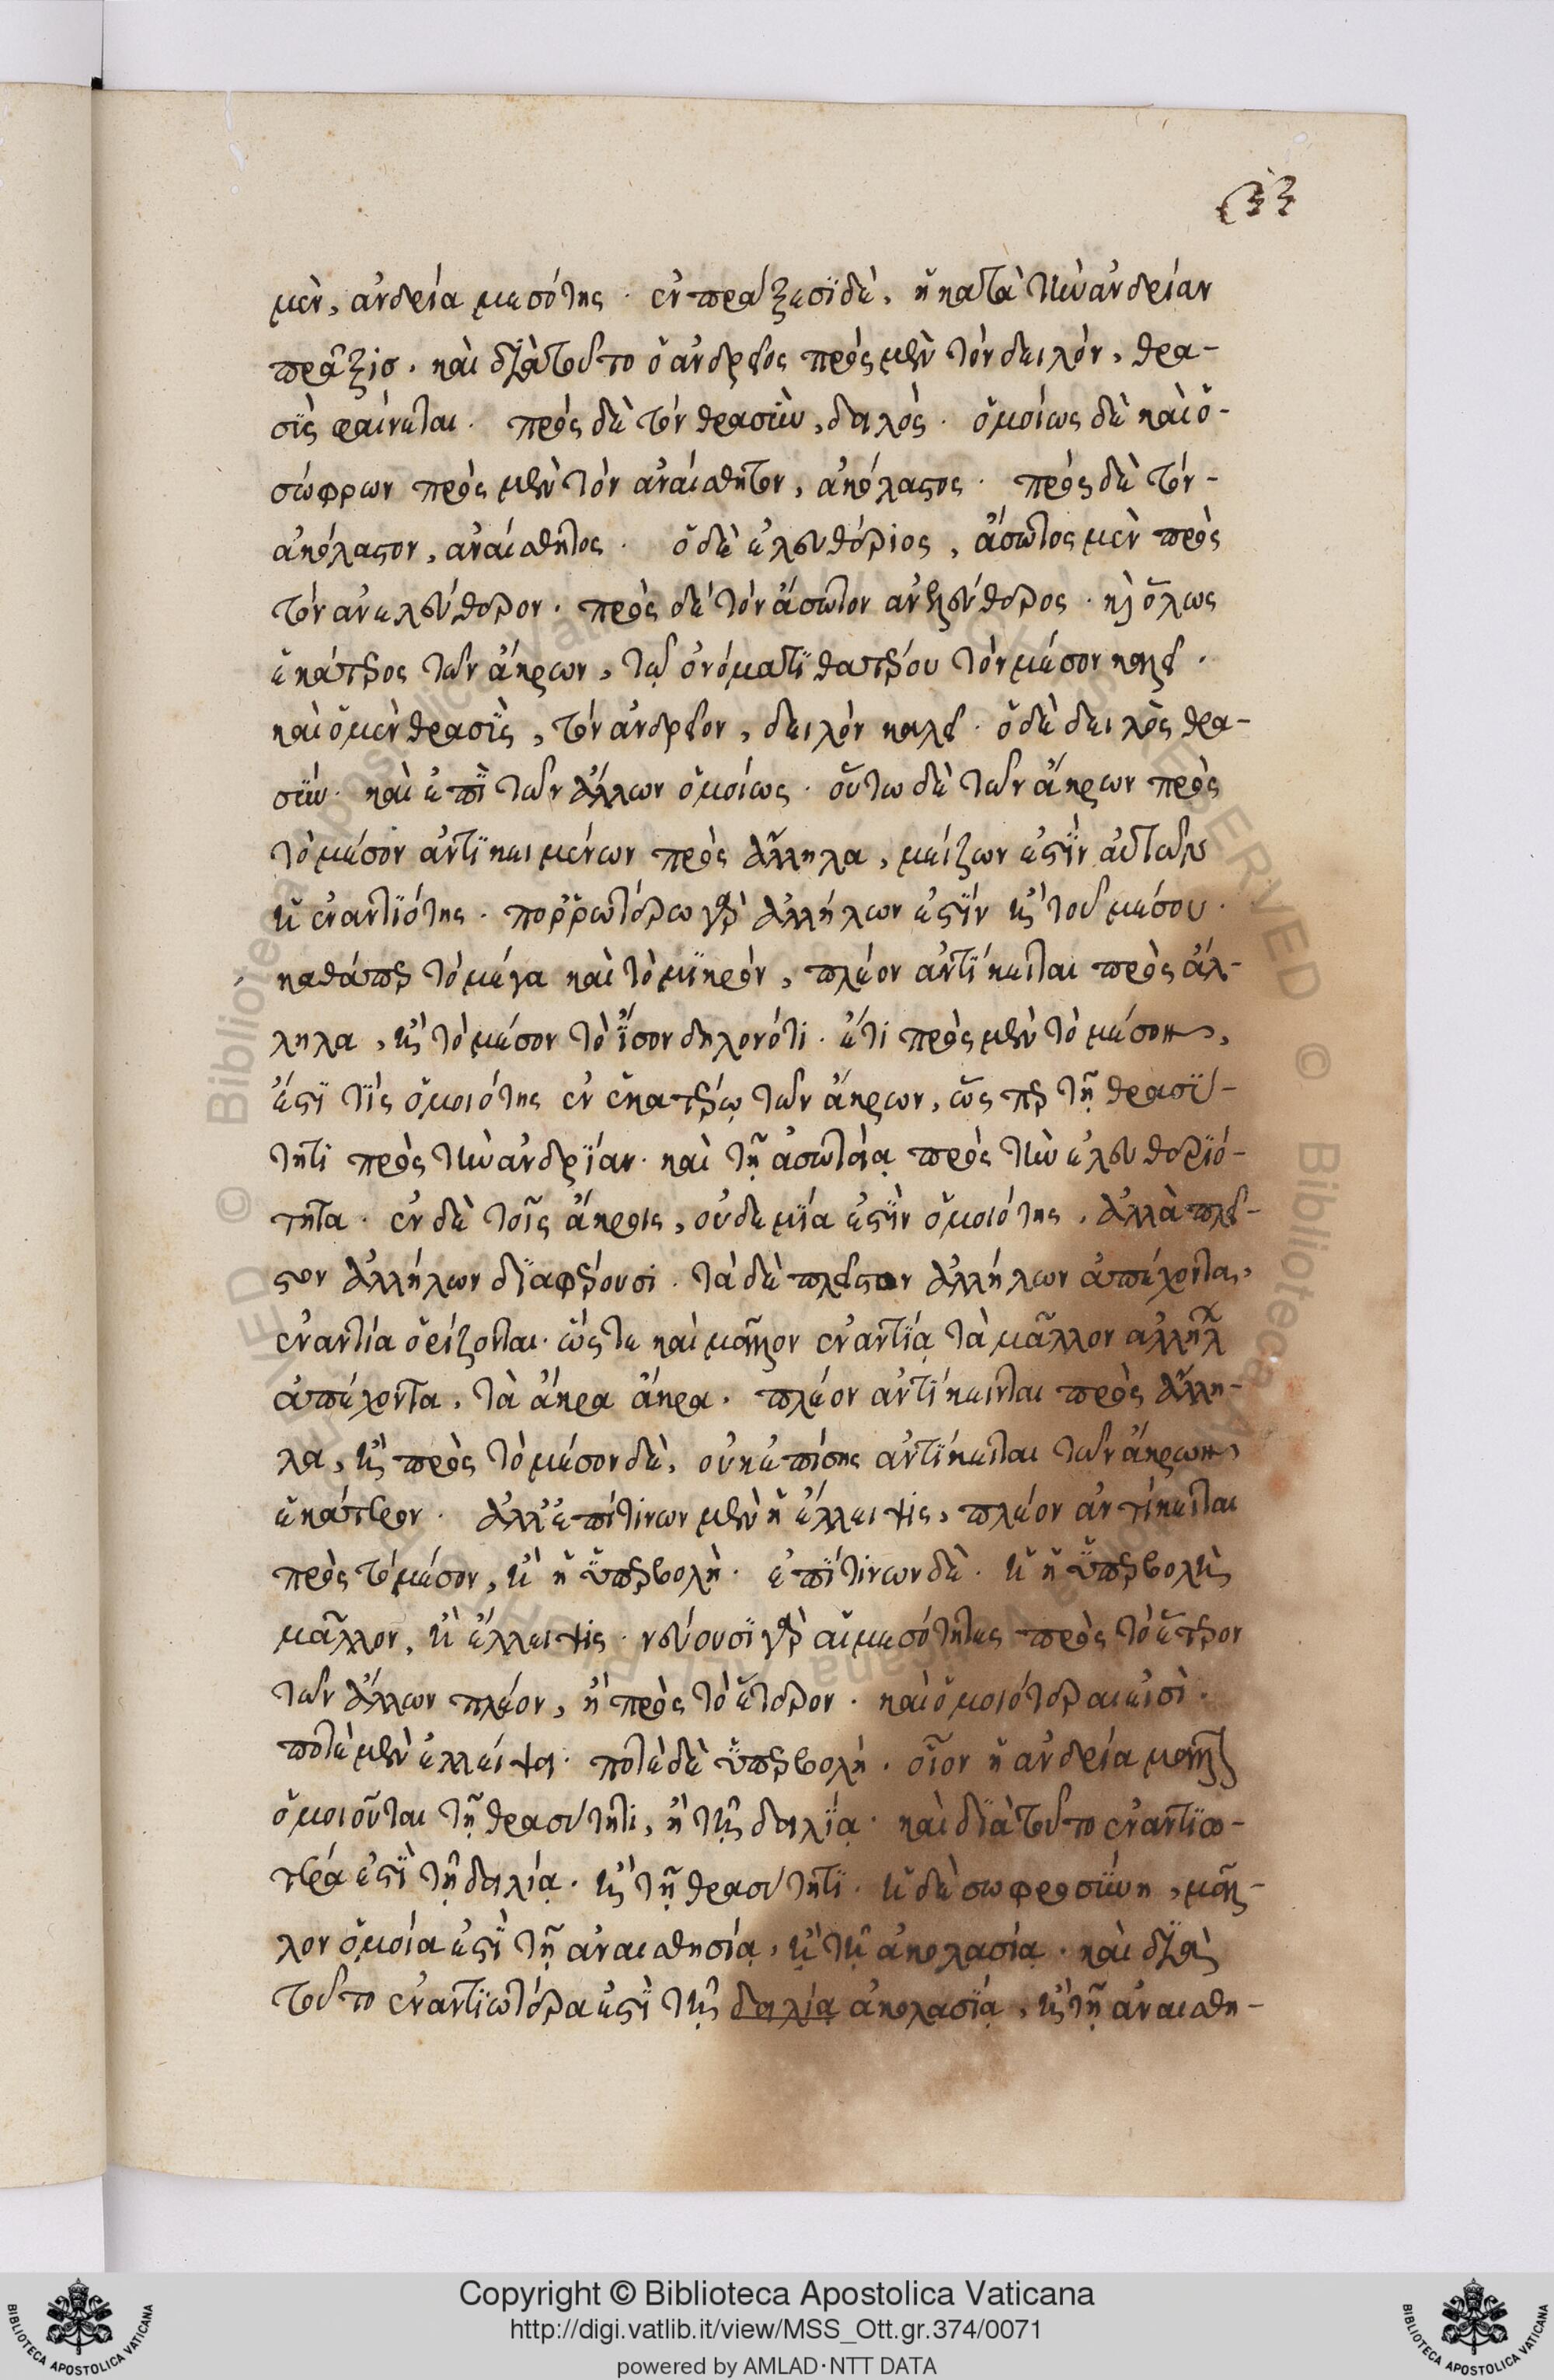 33
μὲν, ἀνδρία μεσότης · ἐν πράξεσϊ δὲ, ἡ κατὰ τὴν ἀνδρίαν
πρᾶξις · καὶ διὰ τοῦτο ὁ ἀνδρεῖος πρὸς μὲν τὸν δειλὸν, θρα-
σὺς φαίνεται · πρὸς δὲ τὸν θρασὺν, δειλὸς · ὁμοίως δὲ καὶ ὁ-
σώφρων πρὸς μὲν τὸν ἀναίσθητον, ἀκόλαστος · πρὸς δὲ τὸν-
ἀκόλαστον, ἀναίσθητος · ὁ δὲ ἐλευθέριος, ἄσωτος μὲν πρὸς
τὸν ἀνελεύθερον · πρὸς δὲ τὸν ἄσωτον ἀνελεύθερος · καὶ ὅλως
ἑκάτερος τῶν ἄκρων, τῷ ὀνόματϊ θατέρου τὸν μέσον καλεῖ ·
καὶ ὁ μὲν θρασὺς, τὸν ἀνδρεῖον, δειλὸν καλεῖ · ὁ δὲ δειλὸς θρα-
σύν · καὶ ἐπῒ τῶν ἄλλων ὁμοίως · οὕτω δὲ τῶν ἄκρων πρὸς
τὸ μέσον ἀντϊκειμένων πρὸς ἄλληλα, μείζων ἐστῒν αὐτῶν
ἡ ἐναντϊότης · πορρωτέρω γὰρ ἀλλήλων ἐστῒν ἢ τοῦ μέσου ·
καθάπερ τὸ μέγα καὶ τὸ μϊκρὸν, πλέον ἀντΐκειται πρὸς ἄλ-
ληλα, ἢ τὸ μέσον τὸ ἴσον δηλονότι · ἔτι πρὸς μὲν τὸ μέσον,
ἔστϊ τῒς ὁμοιότης ἐν ἑκατέρῳ τῶν ἄκρων, ὥσπερ τῇ θρασΰ-
τητι πρὸς τὴν ἀνδρΐαν · καὶ τῇ ἀσωτείᾳ πρὸς τὴν ἐλευθερϊό-
τητα · ἐν δὲ τοῖς ἄκροις, οὐδεμΐα ἐστῒν ὁμοιότης, ἀλλὰ πλεῖ-
στον ἀλλήλων δϊαφέρουσι · τὰ δὲ πλεῖστον ἀλλήλων ἀπέχοντα,
ἐναντία ὁρίζονται · ὥστε καὶ μᾶλλον ἐναντΐα τὰ μᾶλλον ἀλλήλων
ἀπέχοντα, τὰ ἄκρα ἄκρα · πλέον ἀντΐκεινται πρὸς ἄλλη-
λα, ἢ πρὸς τὸ μέσον δὲ, οὐκ ἐπίσης ἀντΐκειται τῶν ἄκρων,
ἑκάτερον · ἀλλ' ἐπί τινων μὲν ἡ ἔλλειψις, πλέον ἀντίκειται
πρὸς τὸ μέσον, ἢ ἡ ὑπερβολὴ · ἐπΐ τινων δὲ · ἢ ἡ ὑπερβολὴ
μᾶλλον, ἢ ἔλλειψις · νεύουσϊ γὰρ αἱ μεσότητες πρὸς τὸ ἕτερον
τῶν ἄλλων πλέον, ἢ πρὸς τὸ ἕτερον · καὶ ὁμοιότεραι εἰσὶ ·
ποτὲ μὲν ἐλλείψει · ποτὲ δὲ ὑπερβολῇ · οἷον ἡ ἀνδρία μᾶλλον
ὁμοιοῦται τῇ θρασύτητι, ἢ τῇ δειλΐᾳ · καὶ δϊὰ τοῦτο ἐναντϊω-
τέρα ἐστῒ τῇ δειλίᾳ · ἢ τῇ θρασύτητϊ · ἡ δὲ σωφροσύνη, μᾶλ-
λον ὁμοία ἐστῒ τῇ ἀναισθησίᾳ, ἢ τῇ ἀκολασίᾳ · καὶ διὰ
τοῦτο ἐναντϊωτέρα ἐστῒ τῇ δειλίᾳ ἀκολασΐᾳ, ἢ τῇ ἀναισθη-
Copyright © Biblioteca Apostolica Vaticana
http://digi.vatlib.it/view/MSS_Ott.gr.374/0071
powered by AMLAD·NTT DATA
BIBLIOTECA APOSTOLICA VATICANA
BIBLIOTECA APOSTOLICA VATICANA